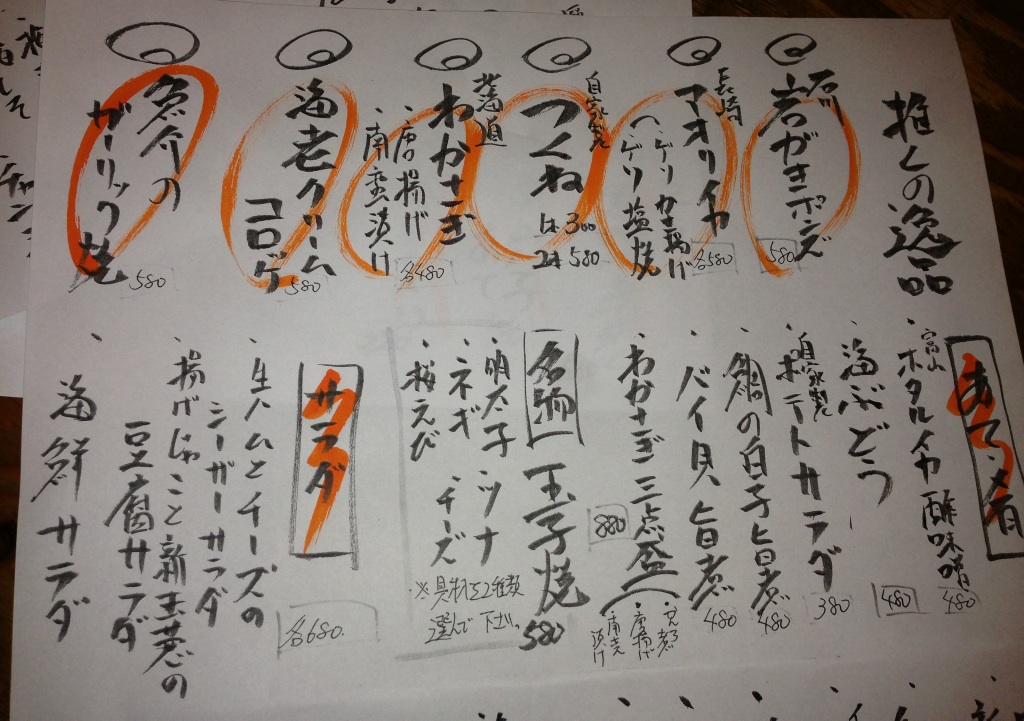 推しの逸品
石川
岩がきポンズ
580
長崎
アオリイカ
(ゲソ塩焼
各580
自家製
つくね
1本 300
2本 580
北海道
わかさぎ
・唐揚げ
・南蛮漬け
各480
海老クリーム
コロッケ
580
魚介の
ガーリック焼
580
・富山
ホタルイカ酢味噌
480
・海ぶどう
480
・自家製
ポテトサラダ
380
・鯛の白子旨煮
480
・バイ貝旨煮
480
・わかさぎ三点盛
880
唐揚げ
名物
玉子焼
580
・明太子・ツナ
・ネギ・チーズ
・桜えび
※具材を2種類
選んで下さい。
サラダ
各680.
・生ハムとチーズの
シーザーサラダ
・揚げじゃこと新玉葱の
豆腐サラダ
・海鮮サラダ